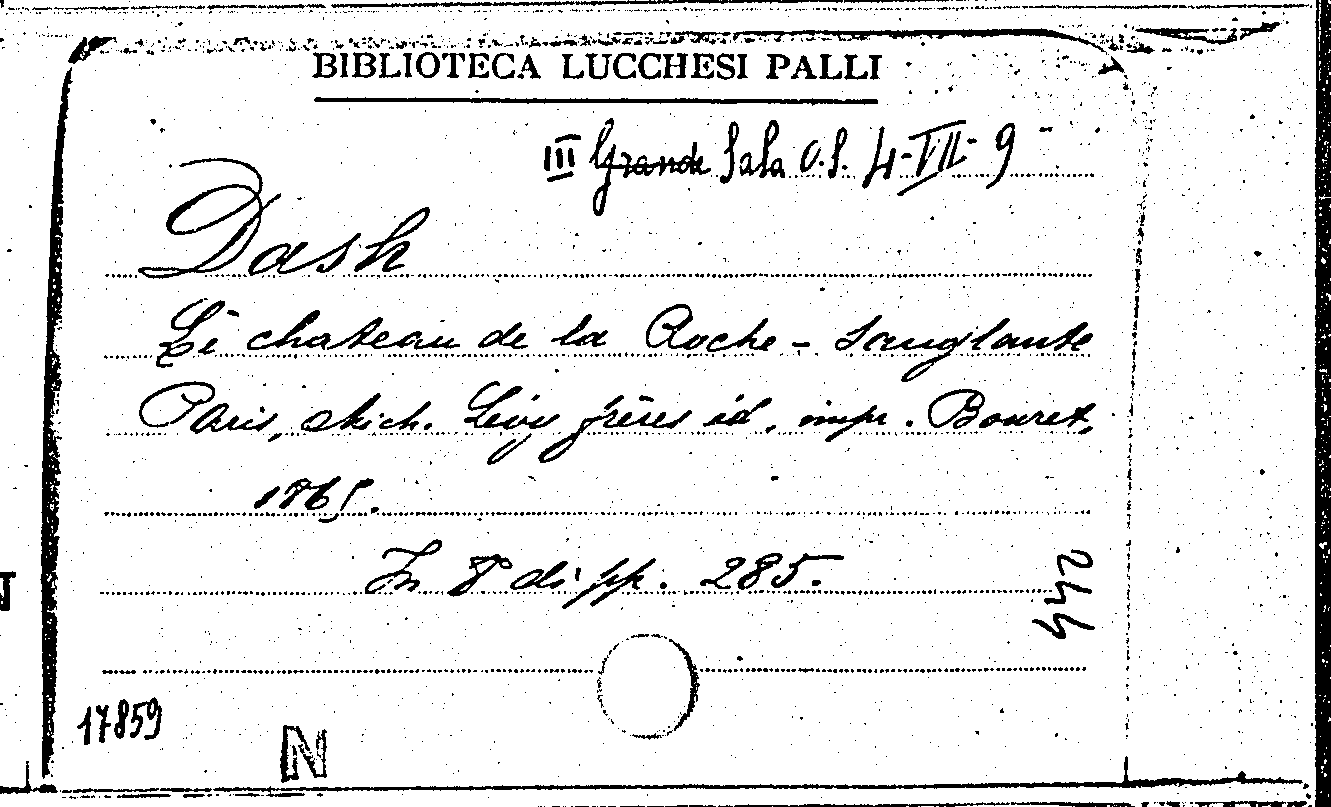 BIBLIOTECA LUCCHESI PALLI
III Grande Sala O.S. 4-VII-9
Dash
Le chateau de la Roche-Sanglante
Paris, Mich. Lévy frères éd., impr. Bouret,
1865.
In 8° di pp. 285.
442
17859
N